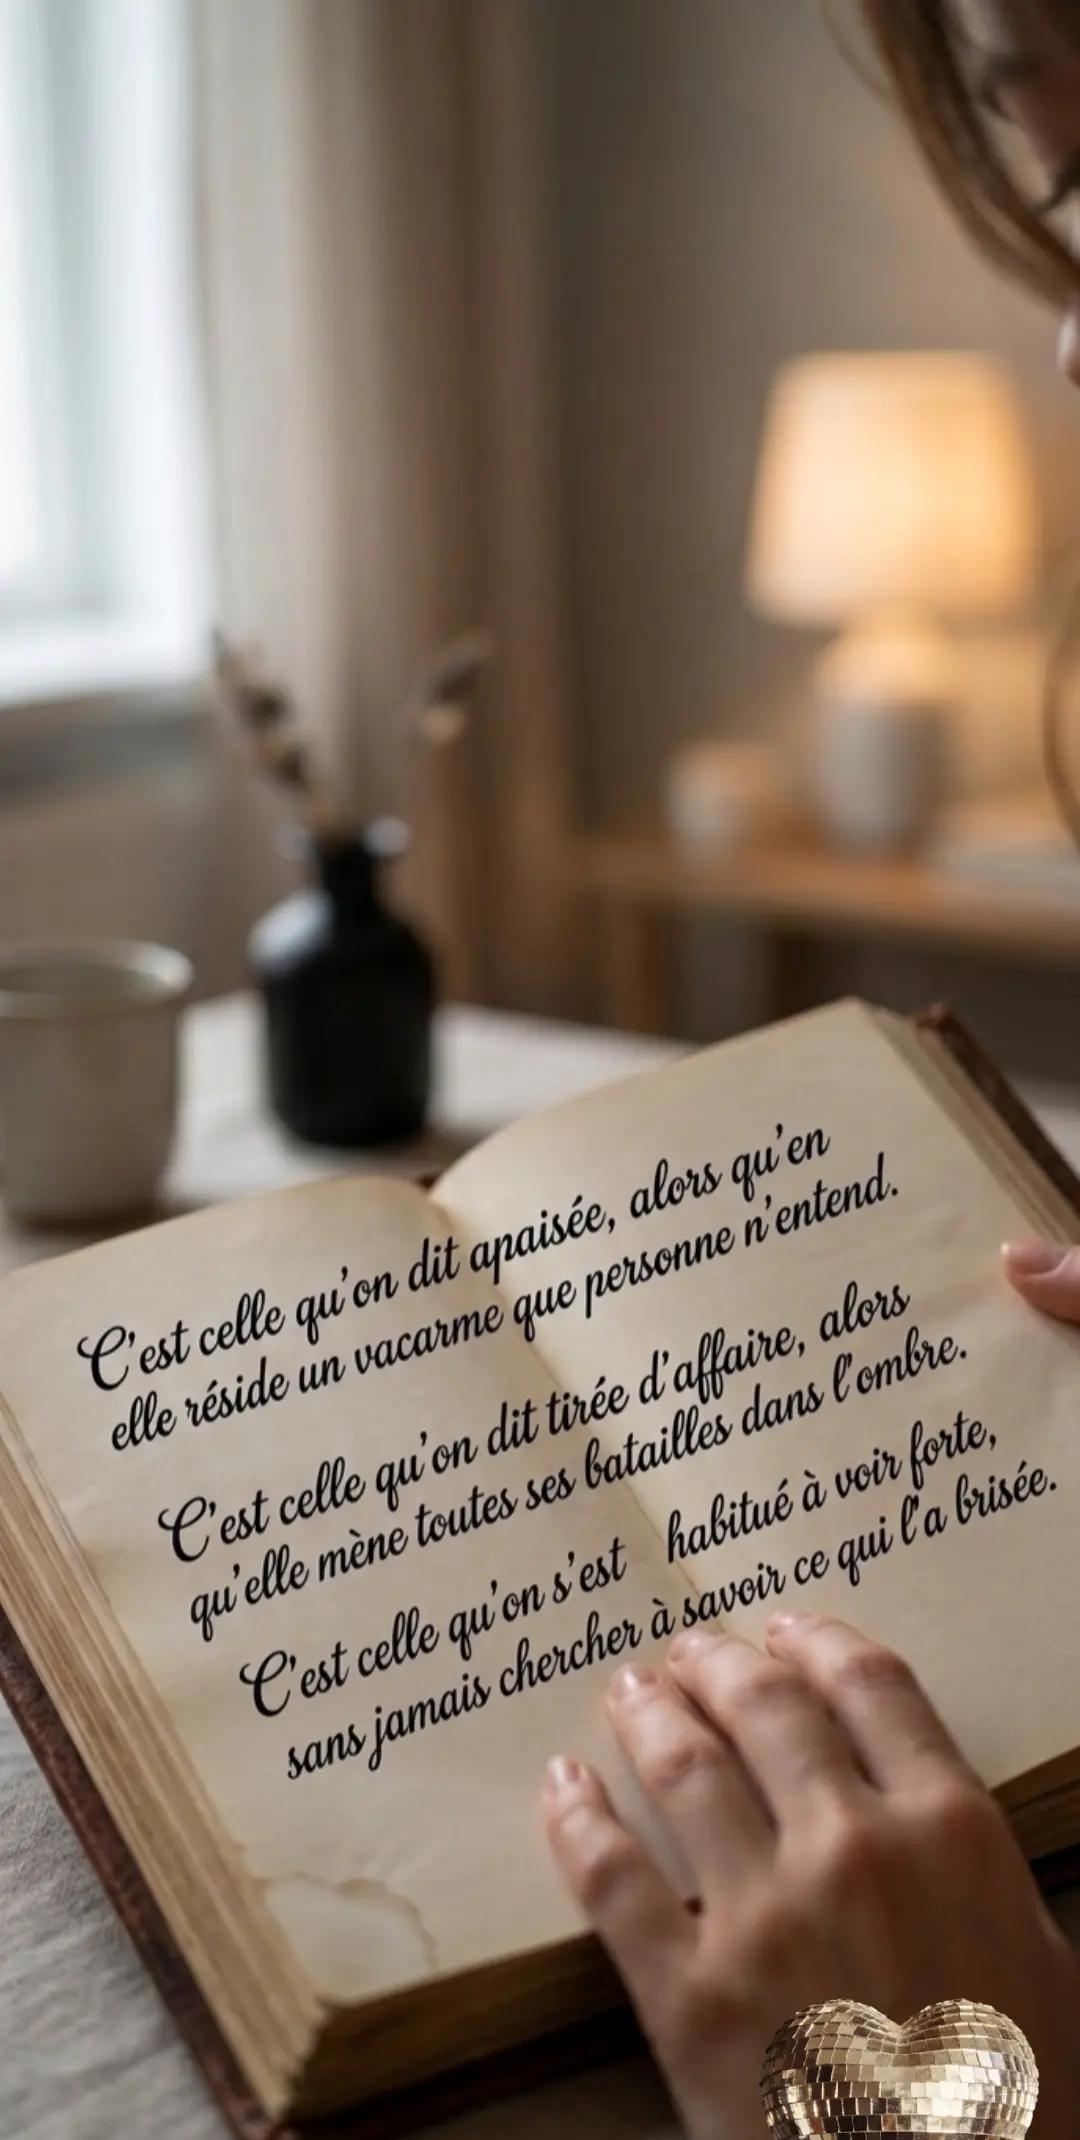 C'est celle qu'on dit apaisée, alors qu'en
elle réside un vacarme que personne n'entend.
C'est celle qu'on dit tirée d'affaire, alors
qu'elle mène toutes ses batailles dans l'ombre.
C'est celle qu'on s'est habitué à voir forte,
sans jamais chercher à savoir ce qui l'a brisée.